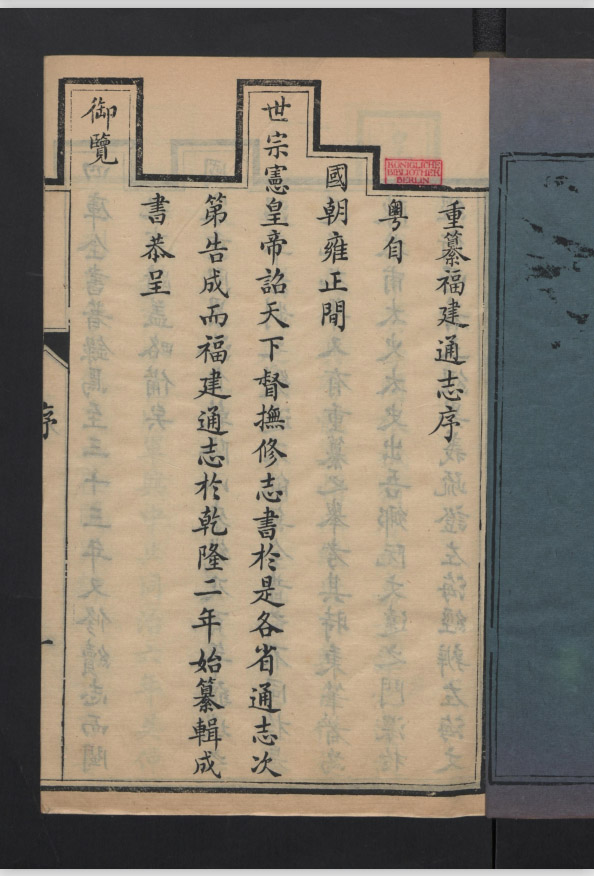 重纂福建通志序
粵自
國朝雍正間
世宗憲皇帝詔天下督撫修志書於是各省通志次
第告成而福建通志於乾隆二年始纂輯成
書恭呈
御覽
序
一
KÖNIGLICHE
BIBLIOTHEK
BERLIN